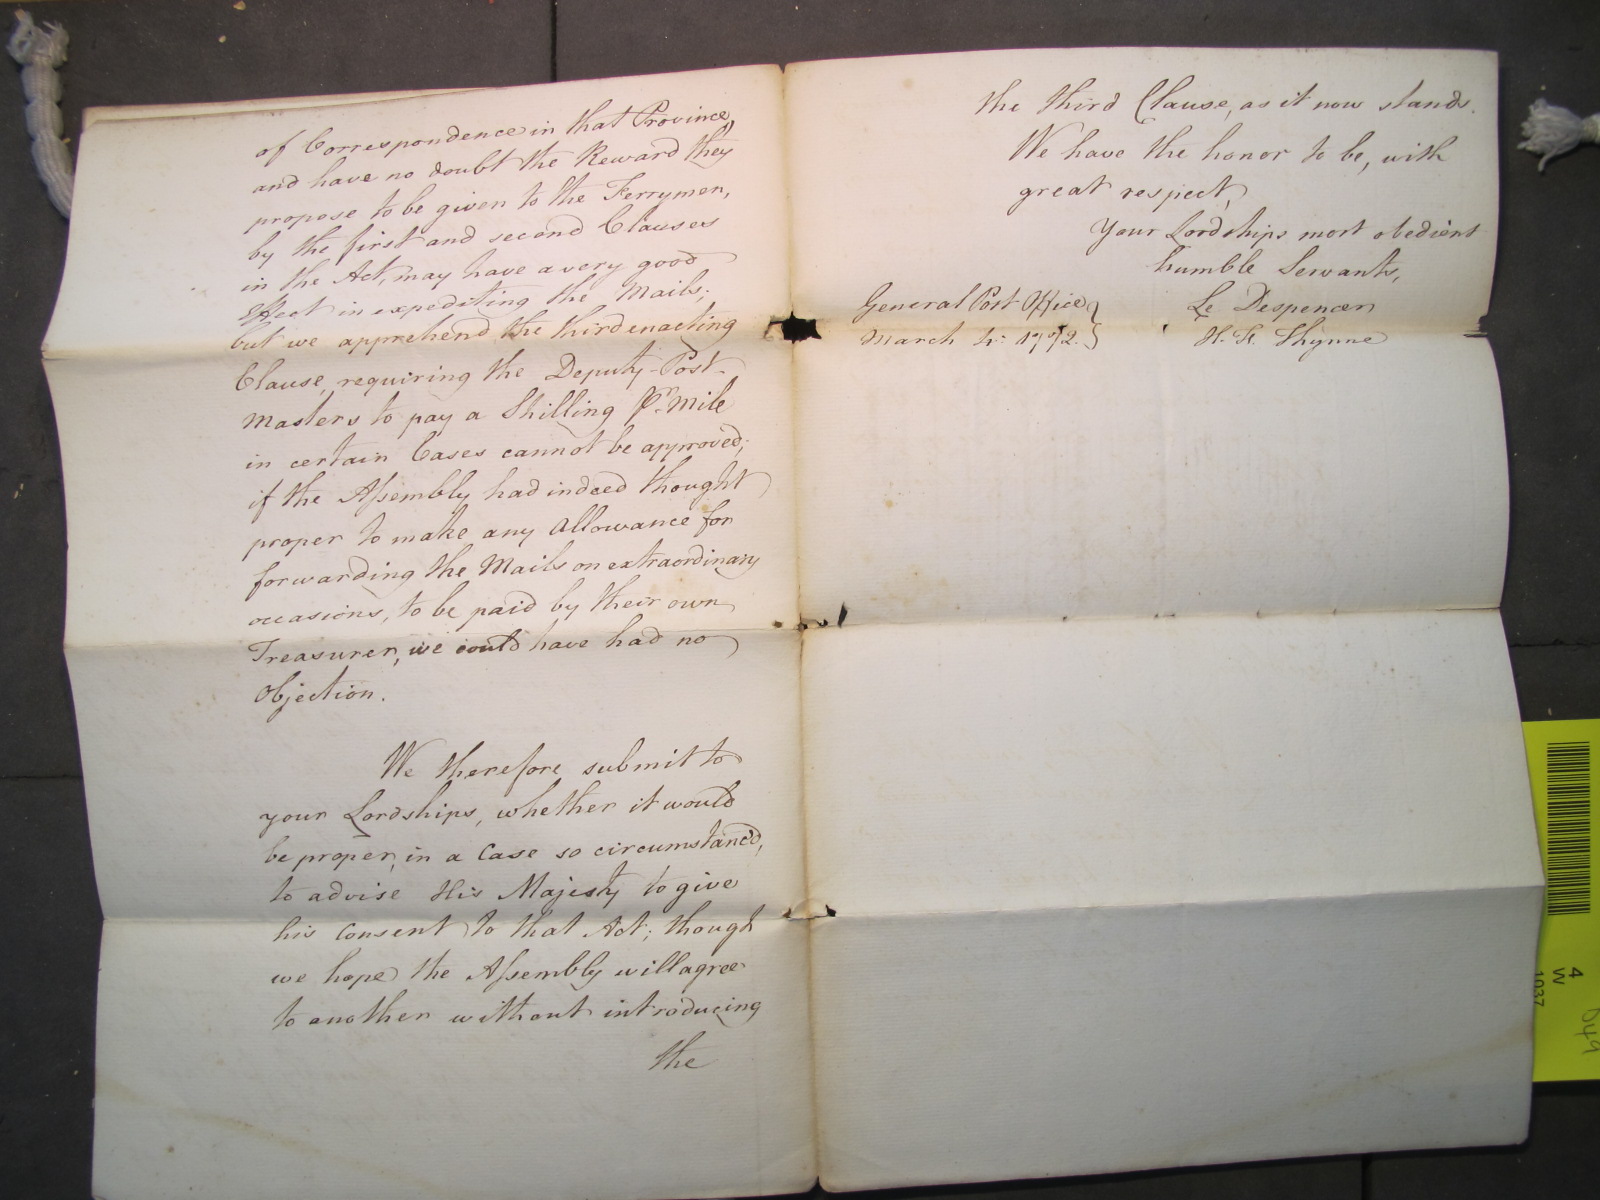 of Correspondence in that Province,
and have no doubt the Reward they
propose to be given to the Ferrymen,
by the first and second Clauses
in the Act, may have a very good
Effect in expediting the Mails;
but we apprehend the third enacting
Clause, requiring the Deputy-Post-
Masters to pay a Shilling Pr. Mile
in certain Cases cannot be approved;
if the Assembly had indeed thought
proper to make any Allowance for
forwarding the Mails on extraordinary
occasions, to be paid by their own
Treasurer, we could have had no
Objection.
We therefore submit to
your Lordships, whether it would
be proper, in a Case so circumstanc'd,
to advise His Majesty to give
his Consent to that Act; though
we hope the Assembly will agree
to another without introducing
the
the third Clause, as it now stands.
We have the honor to be, with
great respect,
Your Lordships most obedient
humble Servants,
Le Despencer
H. F. Thynne
General Post Office
March 4: 1772.
4
W
1037
649